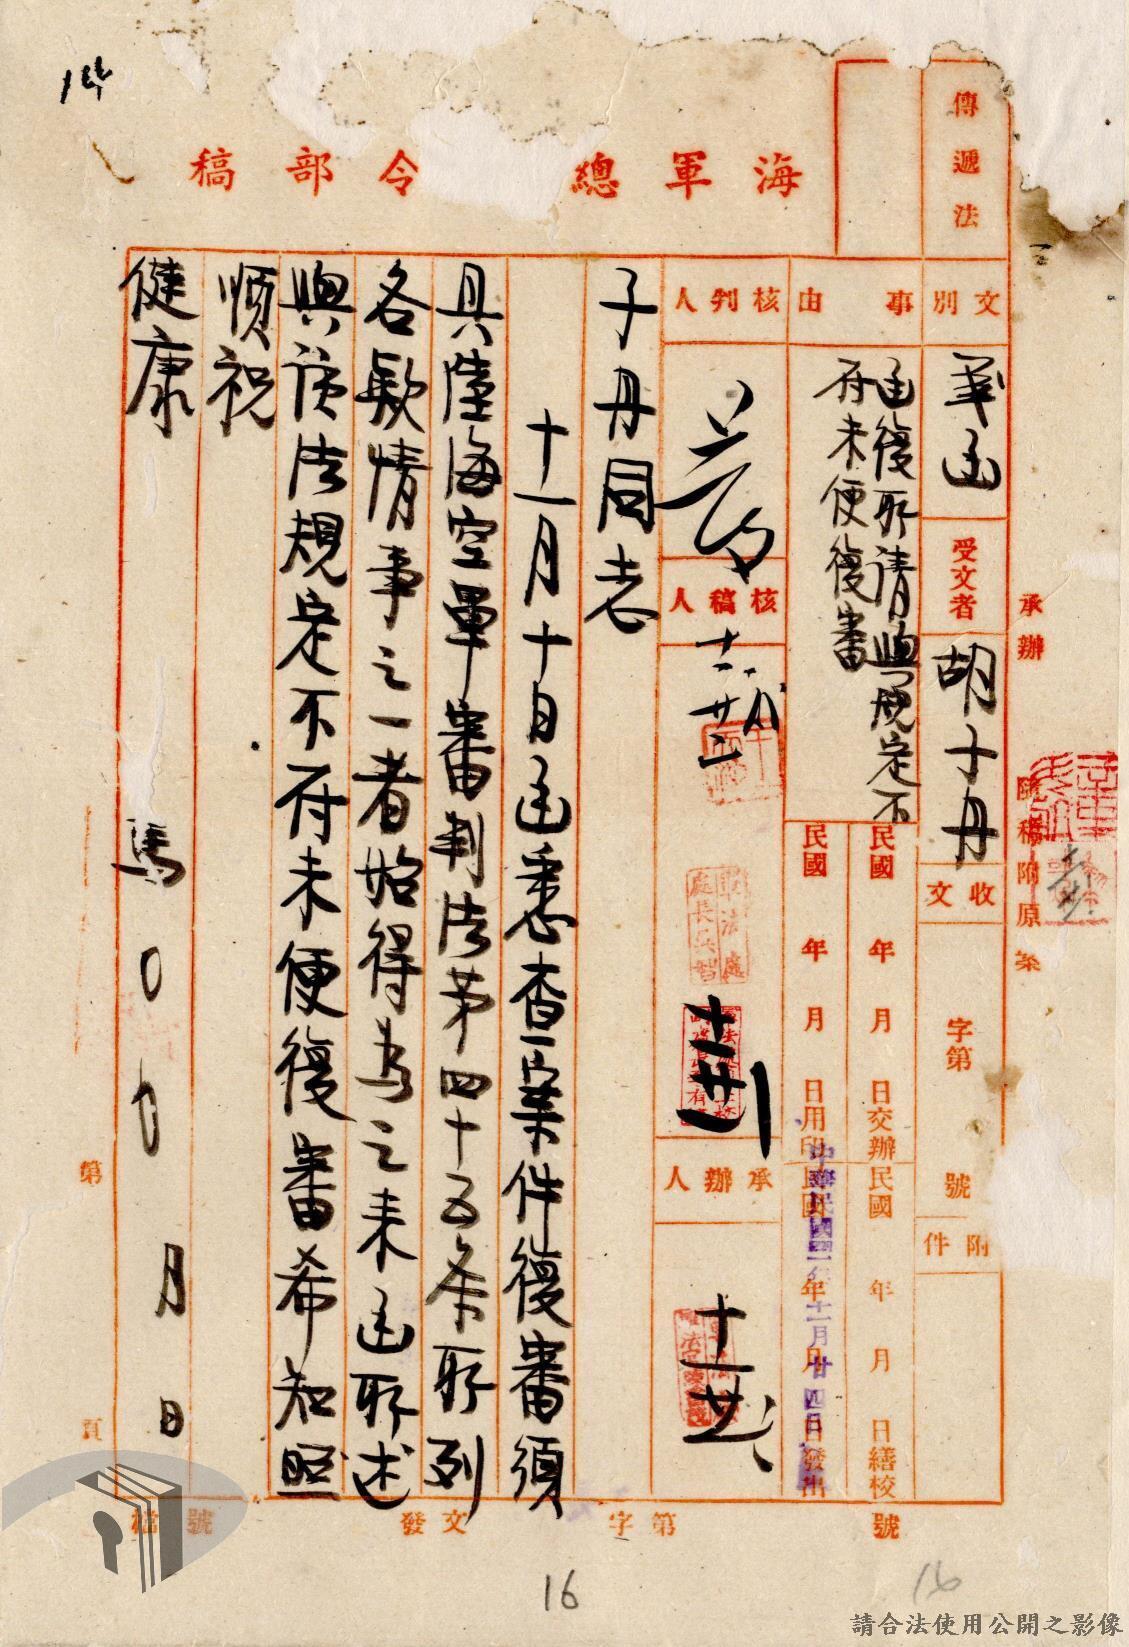 14
海軍總
令部稿
傳遞法
文別
箋函
受文者
胡子丹
收文
字第
號
附件
事由
函復所請與規定不
符未便復審
民國 年 月 日交辦
民國 年 月 日繕校
民國 年 月 日用印
民國 年 月 日發出
中華民國四十一年十一月廿四日
核判人
核稿人
十一
廿二
軍法處
處長
承辦人
十一
子丹同志
十一月十日函悉查案件復審須
具陸海空軍審判法第四十五條所列
各款情事之一者始得為之來函所述
與該法規定不符未便復審希知照
順祝
健康
馬〇〇 月 日
承辦
隨稿附原案
第
頁
檔號
發文
字第
號
16
16
請合法使用公開之影像